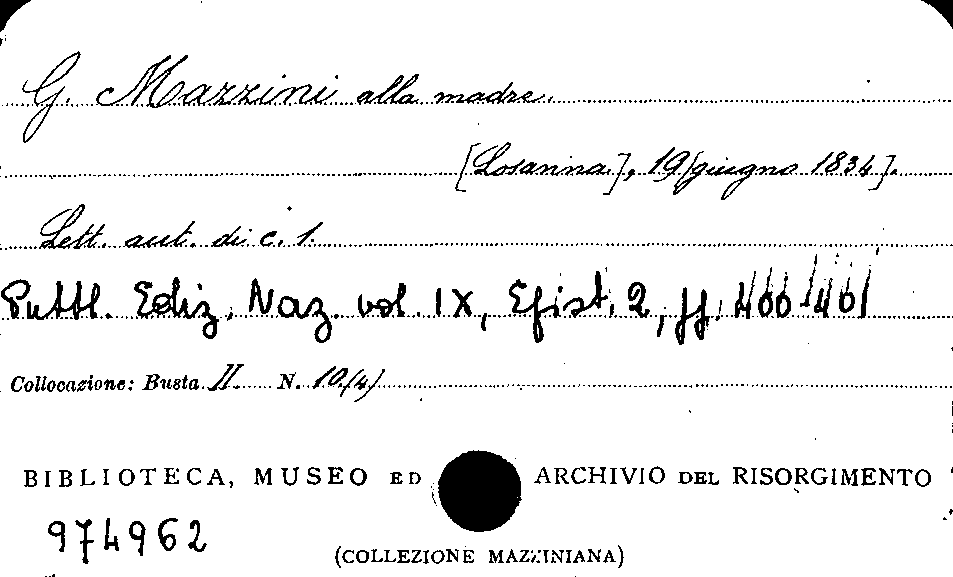 G. Mazzini alla madre.
[Losanna], 19 [giugno 1834].
Lett. aut. di c. 1.
Pubbl. Ediz. Naz. vol. IX, Epist. 2, pp. 400-401
Collocazione: Busta II. N. 10(4)
BIBLIOTECA, MUSEO ED ARCHIVIO DEL RISORGIMENTO
974962
(COLLEZIONE MAZZINIANA)